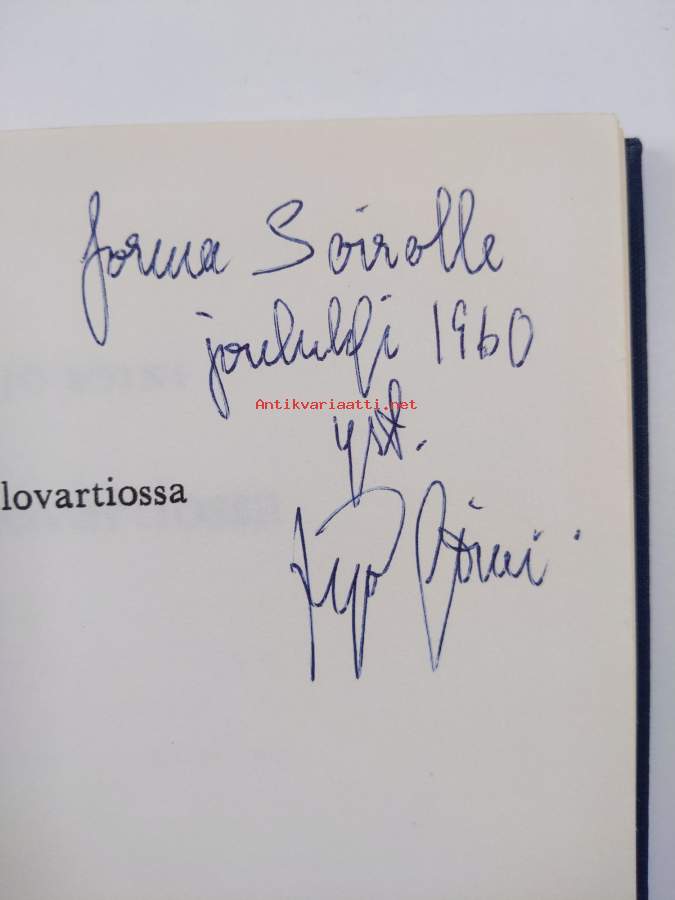 Jorma Soirolle
jouluksi 1960
Antikvariaatti.net
yst.
lovartiossa